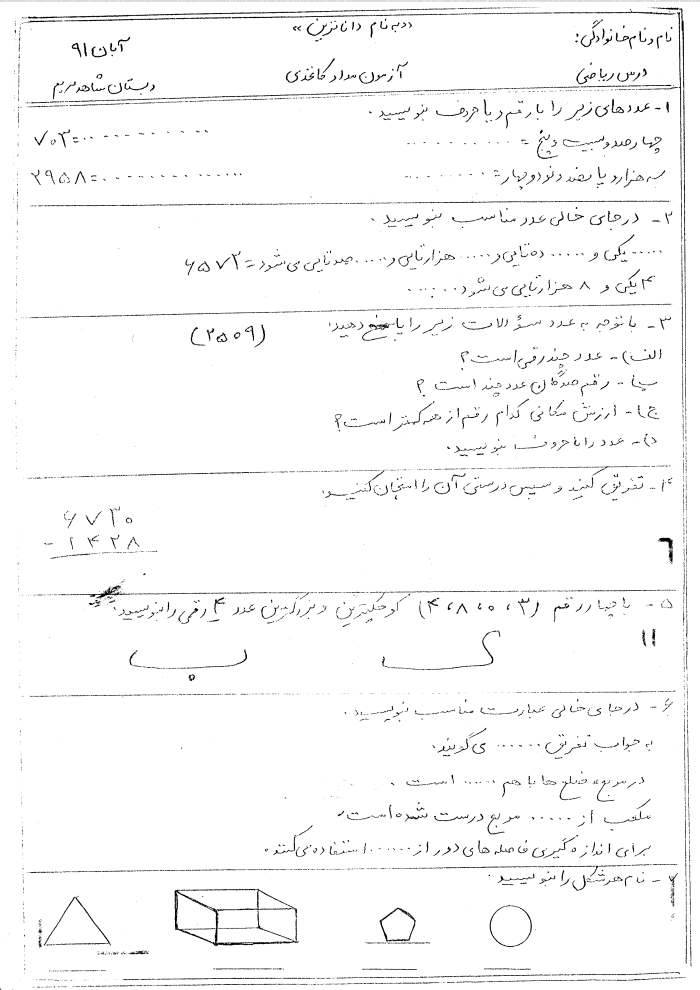 «به نام داناترین»
نام و نام خانوادگی:
آبان ۹۱
درس ریاضی
آزمون مداد کاغذی
دبستان شاهد مریم
۱- عددهای زیر را با رقم و یا حروف بنویسید.
چهارصد و بیست و پنج = ............
۷۰۳=............
سه هزار و پانصد و نود و چهار= .........
۲۹۵۸=................
۲- در جای خالی عدد مناسب بنویسید.
..... یکی و ..... ده تایی و .... هزارتایی و ..... صدتایی می شود = ۶۵۷۲
۴ یکی و ۸ هزارتایی می شود ......
۳- با توجه به عدد سؤالات زیر را پاسخ دهید:
(۲۵۰۹)
الف)- عدد چند رقمی است؟
ب)- رقم صدگان عدد چند است؟
ج)- ارزش مکانی کدام رقم از همه کمتر است؟
د)- عدد را با حروف بنویسید.
۴- تفریق کنید و سپس درستی آن را امتحان کنید.
۶۷۳۰
- ۱۴۲۸
۶
۵- با چهار رقم (۳،۰،۸،۴) کوچکترین و بزرگترین عدد ۴ رقمی را بنویسید.
۱۱
ک
ب
۶- در جای خالی عبارت مناسب بنویسید.
به جواب تفریق ...... می گویند.
در مربع ضلع ها با هم ..... است.
مکعب از ..... مربع درست شده است.
برای اندازه گیری فاصله های دور از ...... استفاده می کنند.
۷- نام هر شکل را بنویسید.